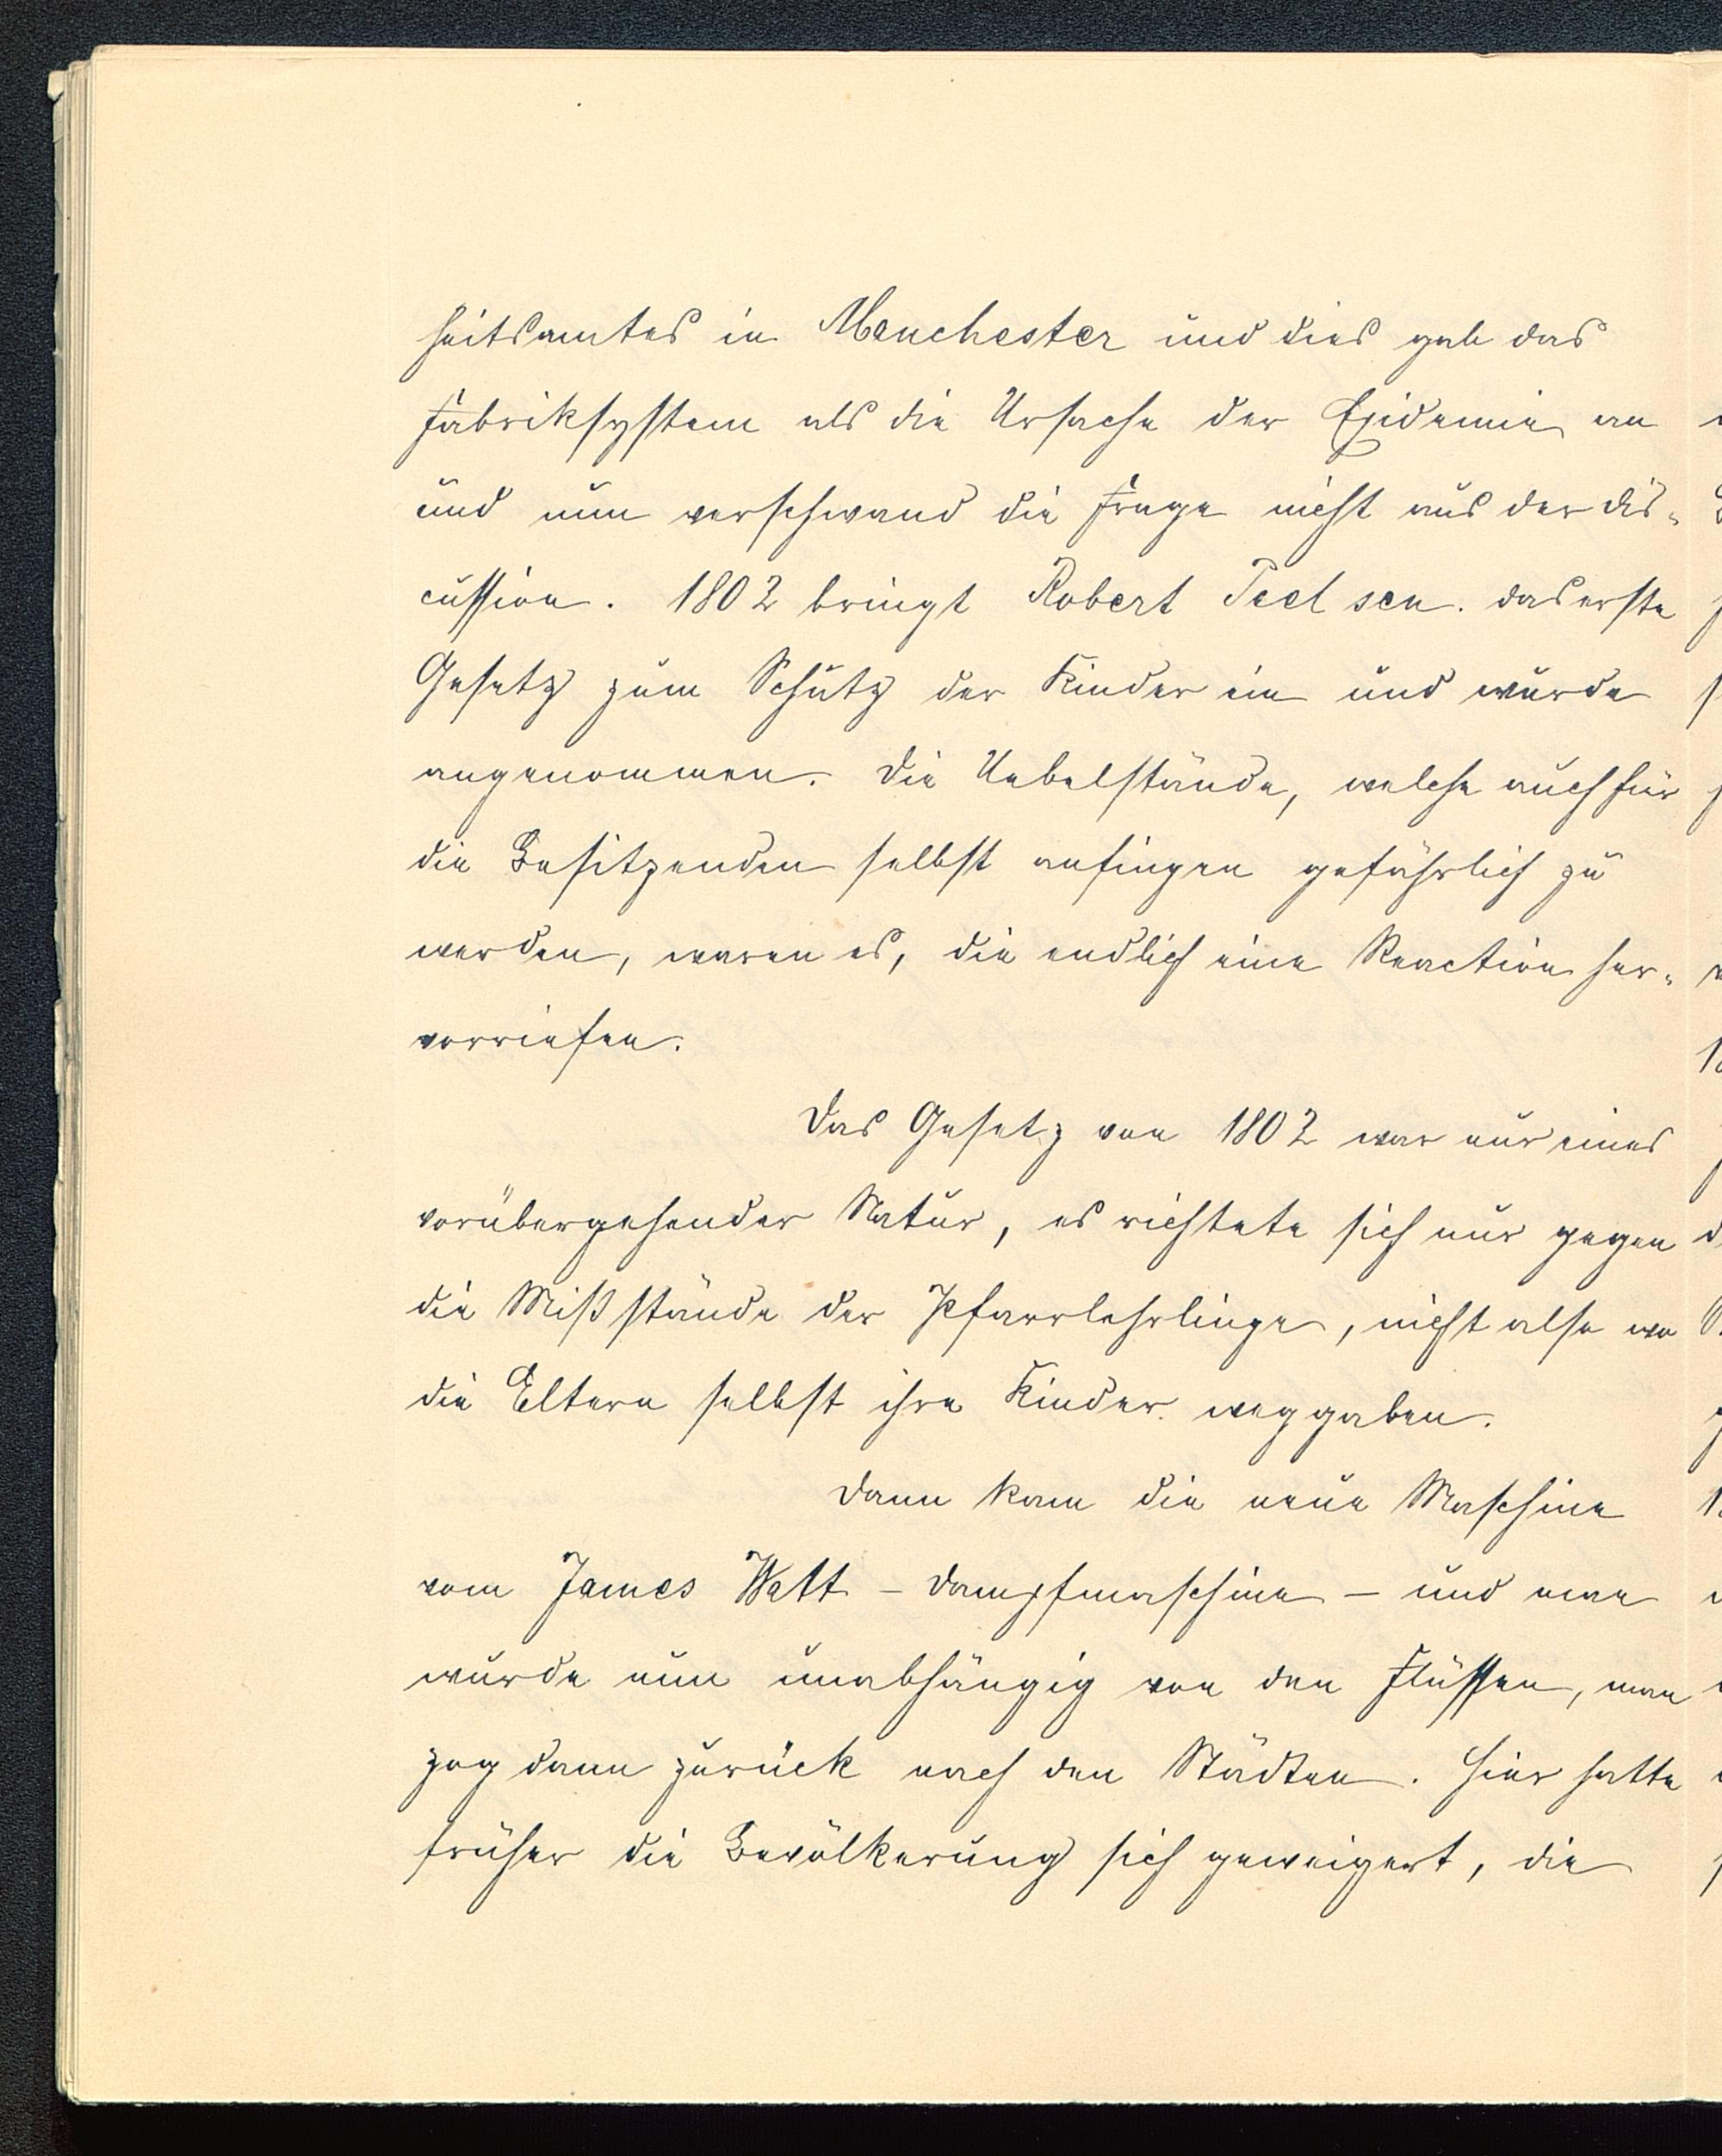 heitsamtes in Manchester und dies gab das
Fabriksystem als die Ursache der Epidemie an
und nun verschwand die Frage nicht aus der Dis-
cussion. 1802 bringt Robert Peel sen. das erste
Gesetz zum Schutz der Kinder ein und wurde
angenommen. Die Uebelstände, welche auch für
die Besitzenden selbst anfingen gefährlich zu
werden, waren es, die endlich eine Reaction her-
vorriefen.
Das Gesetz von 1802 war nur eines
vorübergehender Natur, es richtete sich nur gegen
die Mißstände der Pfarrlehrlinge, nicht also wo
die Eltern selbst ihre Kinder weggaben.
Dann kam die neue Maschine
vom James Watt – Dampfmaschine – und man
wurde nun unabhängig von den Flüssen, man
zog dann zurück nach den Städten. Hier hatte
früher die Bevölkerung sich geweigert, die